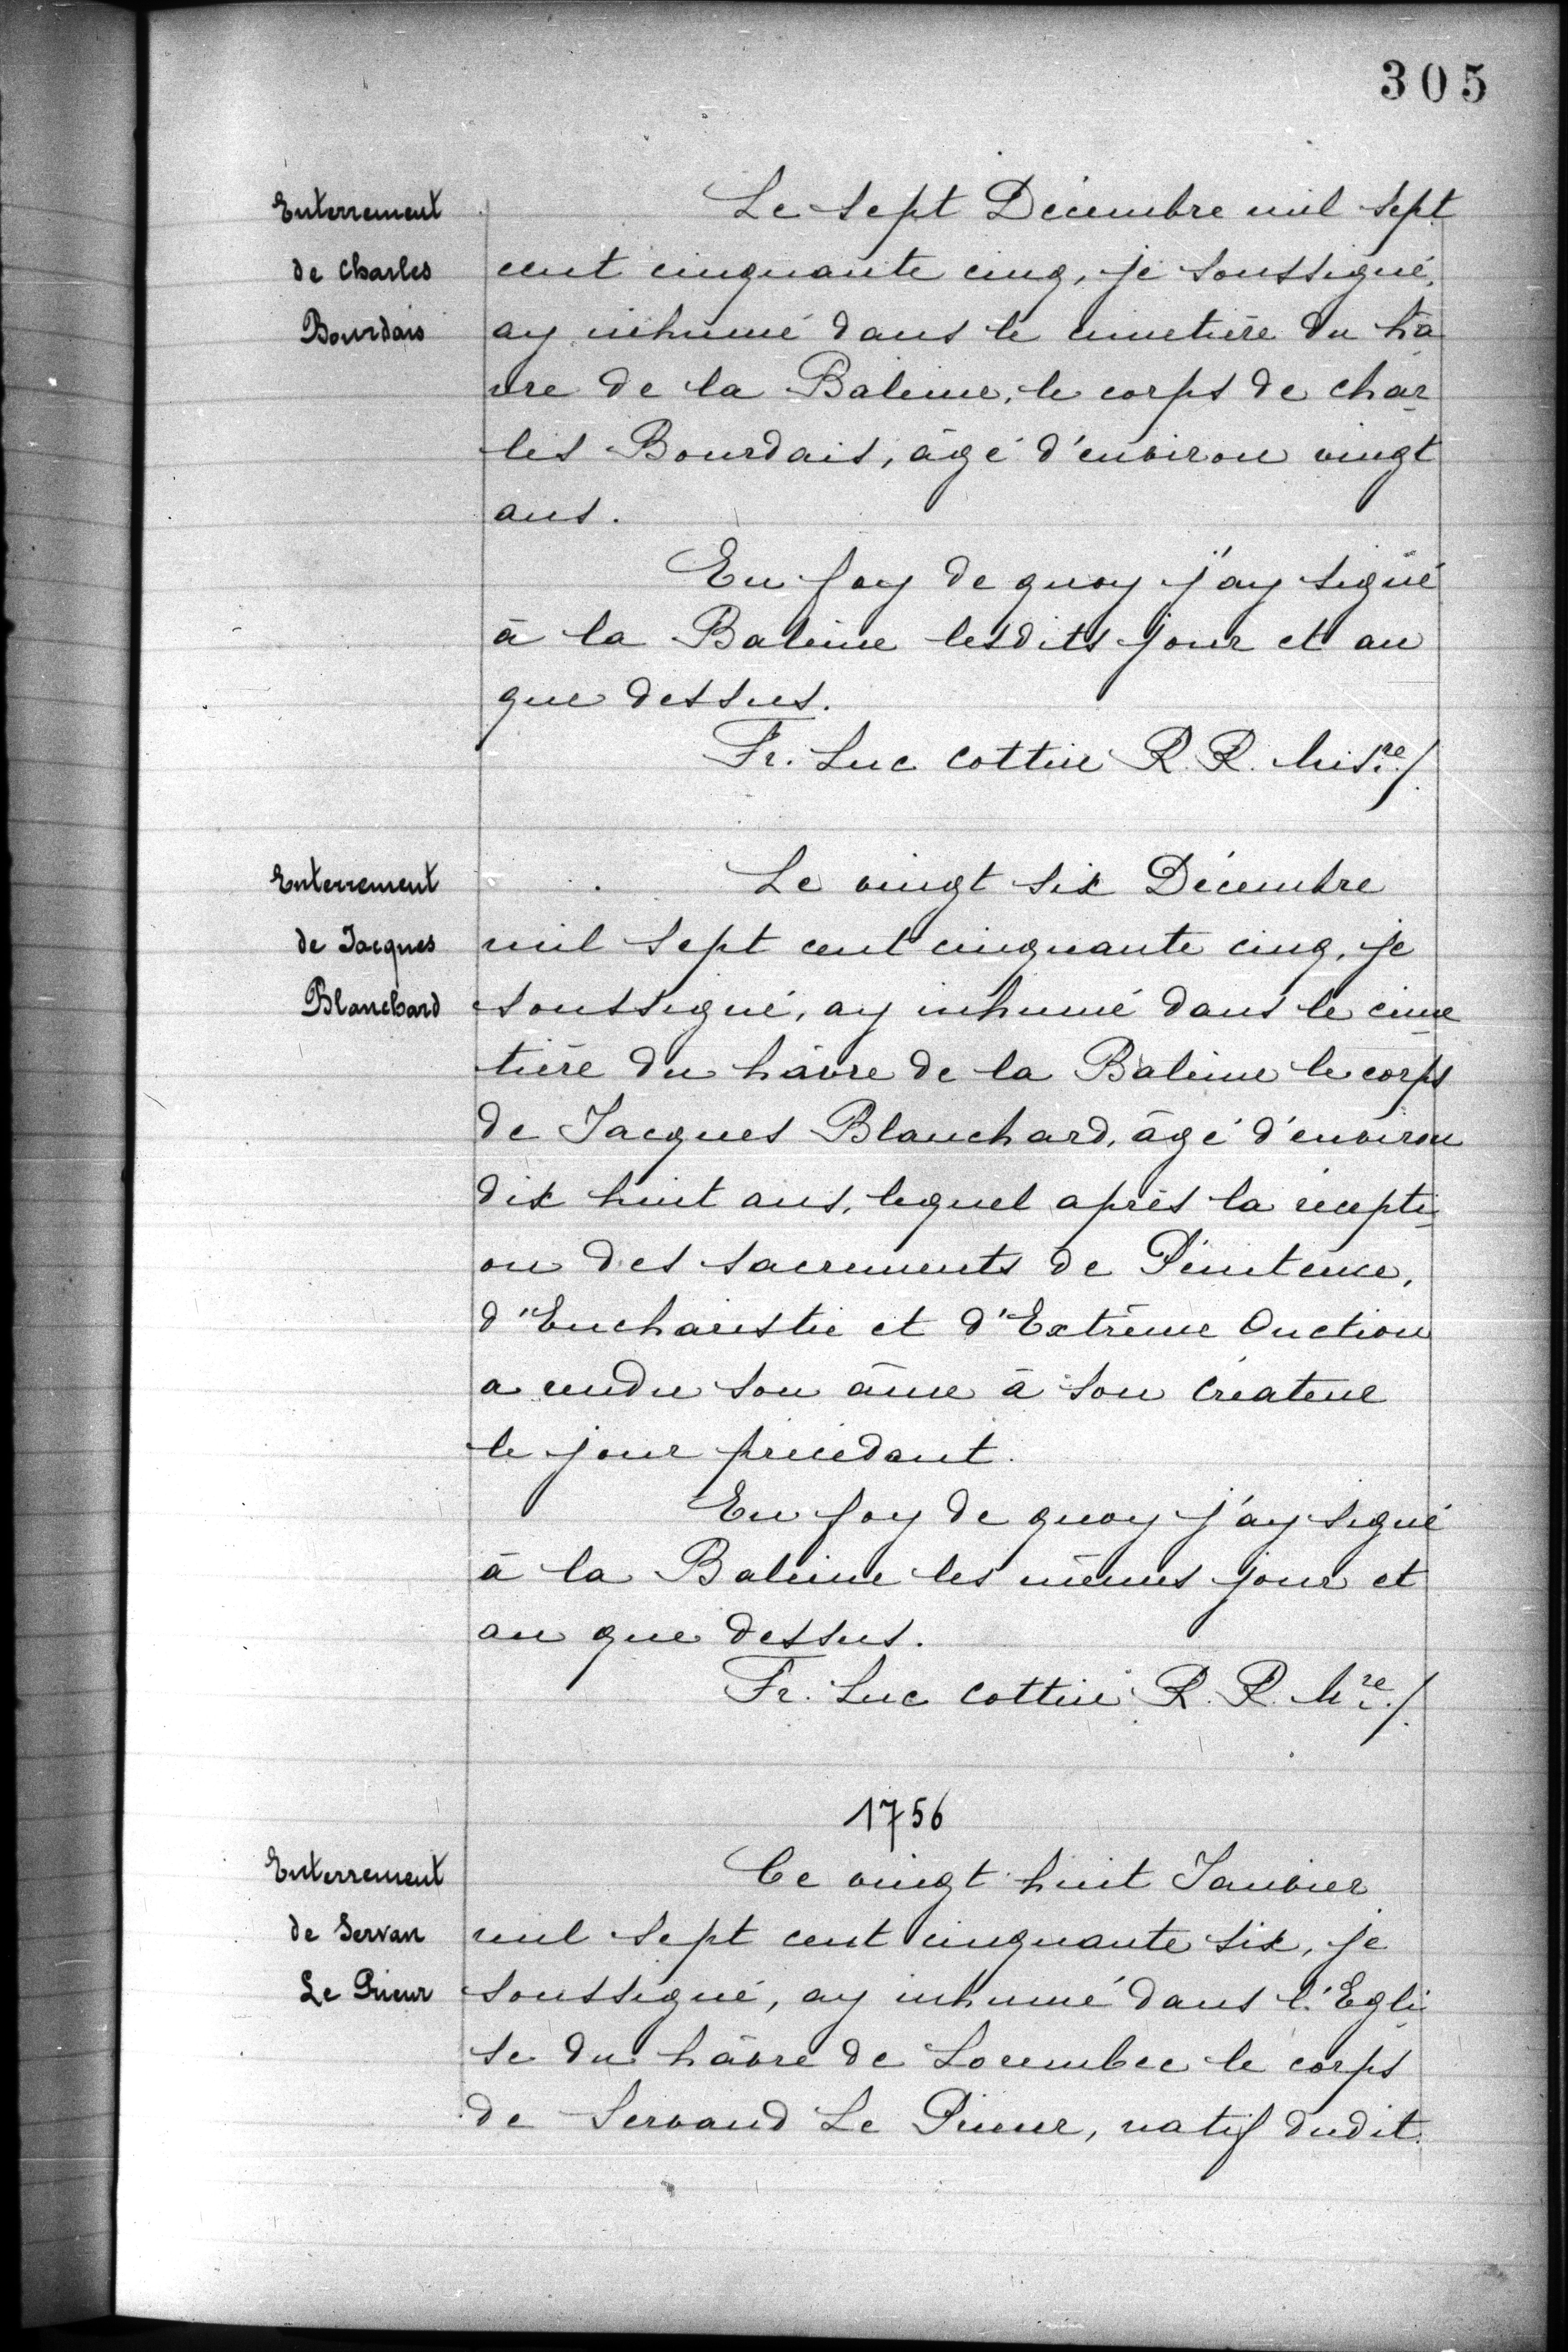 305
Enterrement
de Charles
Bourdais
Le sept Décembre mil sept
cent cinquante cinq, je soussigné,
ay inhumé dans le cimetière du hâ
vre de la Baleine, le corps de Char
les Bourdais, âgé d'environ vingt
ans.
En foy de quoy j'ay signé
à la Baleine lesdits jour et an
que dessus.
Fr. Luc Cottin R. R. Misre./.
Enterrement
de Jacques
Blanchard
Le vingt six Décembre
mil sept cent cinquante cinq, je
soussigné, ay inhumé dans le cime
tière du hâvre de la Baleine le corps
de Jacques Blanchard, âgé d'environ
dix huit ans, lequel après la récepti
on des sacrements de Pénitence,
d'Eucharistie et d'Extrême Onction
a rendu son âme à son Créateur
le jour précédant.
En foy de quoy j'ay signé
à la Baleine les mêmes jour et
an que dessus.
Fr. Luc Cottin R. R. Mre./.
1756
Enterrement
de Servan
Le Prieur
Ce vingt huit Janvier
mil sept cent cinquante six, je
soussigné, ay inhumé dans l'Egli
se du hâvre de Lorembec le corps
de Servand Le Prieur, natif dudit